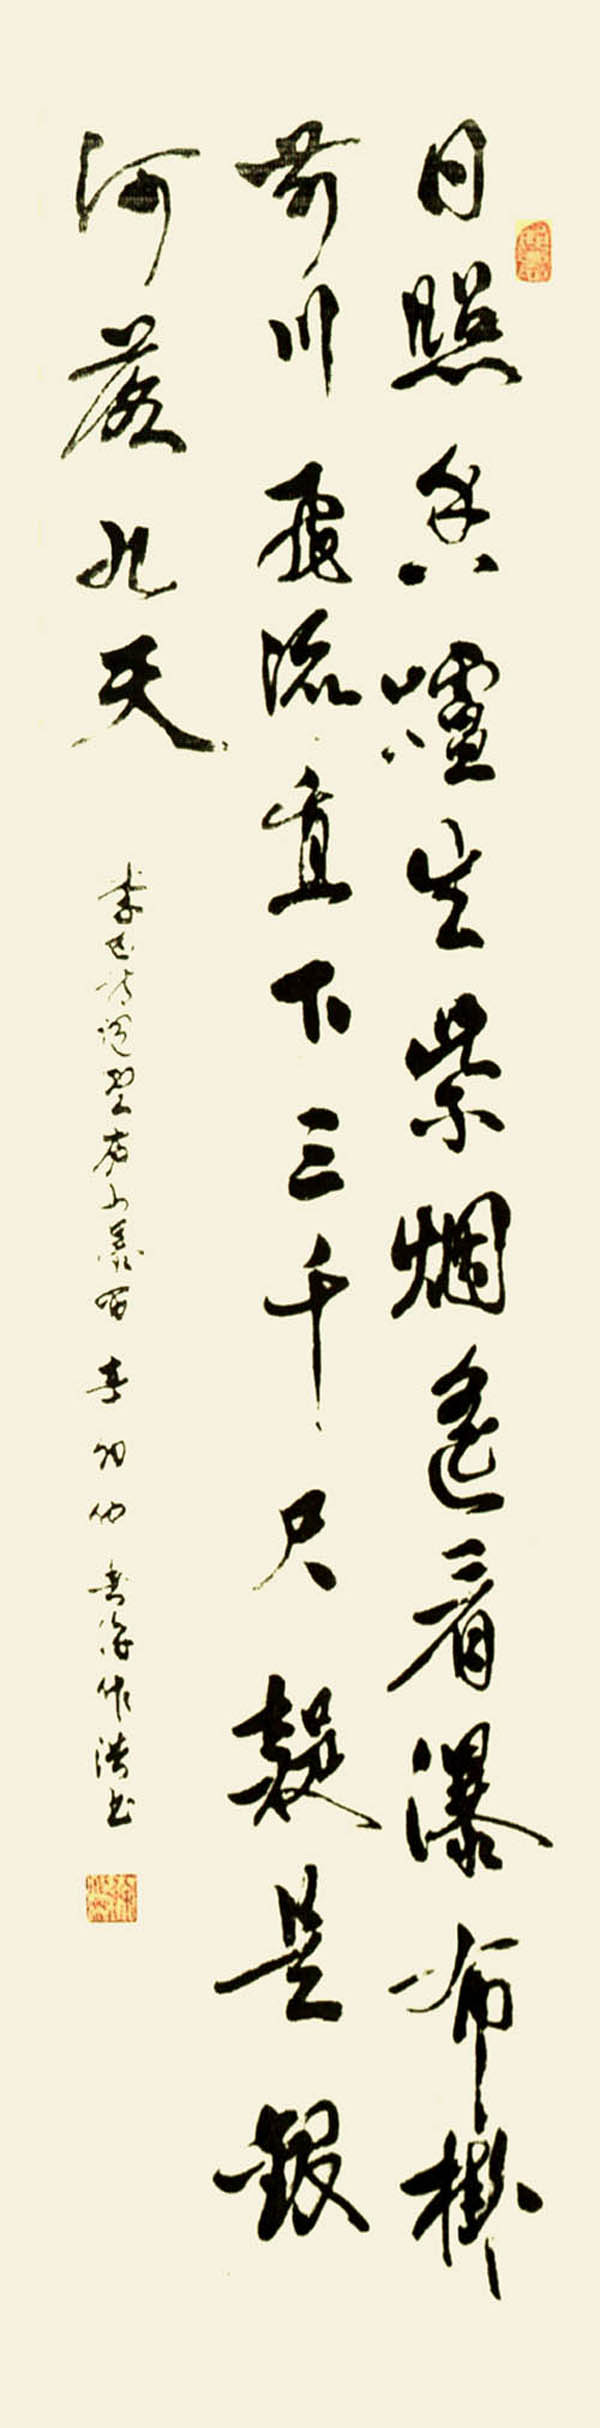 日照香爐生紫烟遙看瀑布掛
前川飛流直下三千尺疑是銀
河落九天
李白詩望廬山瀑布